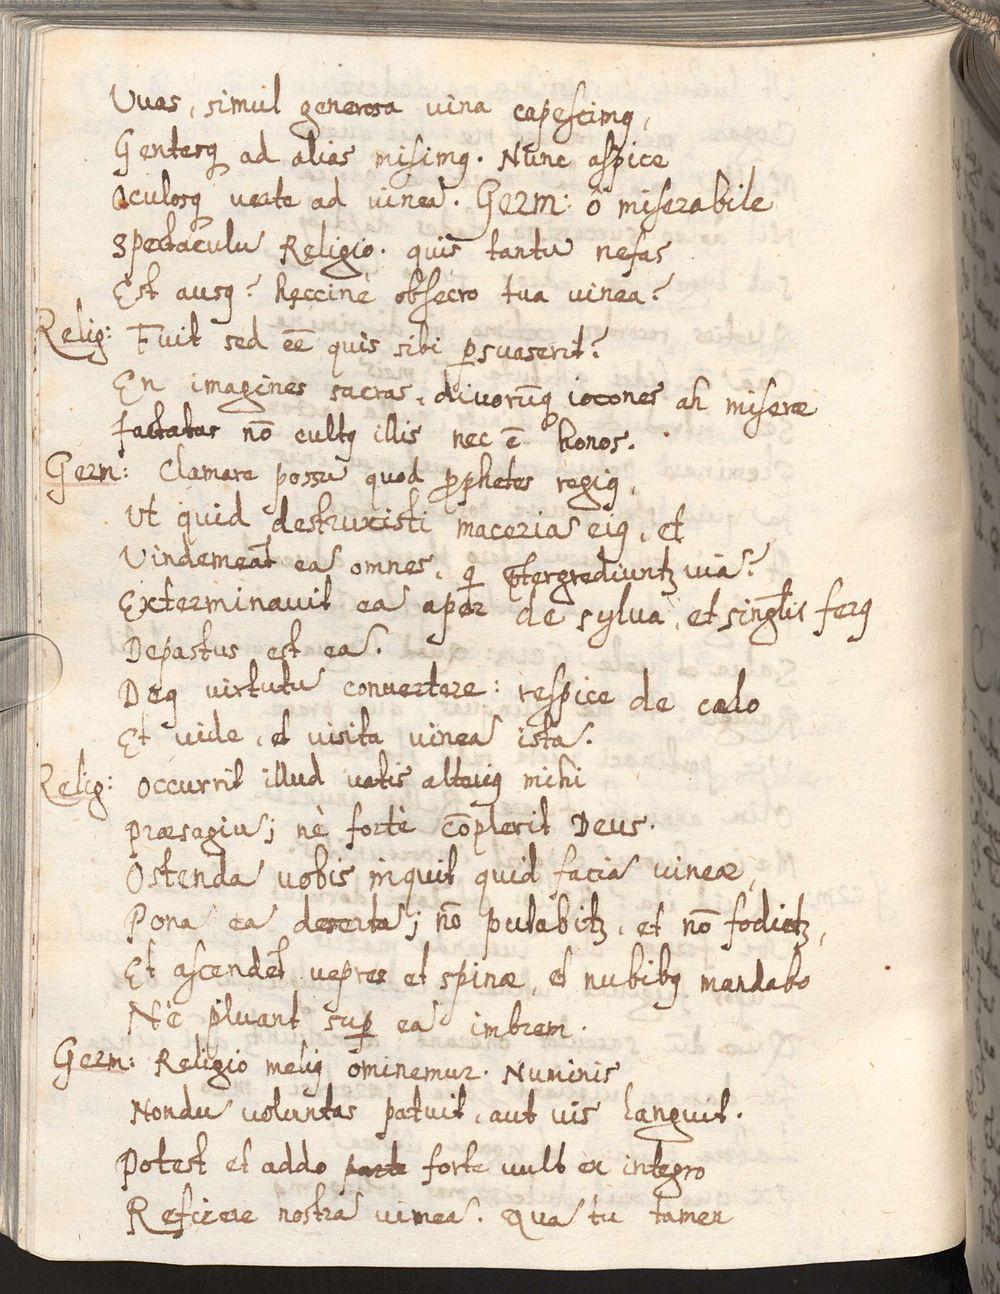 Uvas, simul generosa vina capescimꝰ,
Gentesqꝫ ad alias misimꝰ. Nunc aspice
Oculosqꝫ verte ad vineā. Germ: ô miserabile
Spectaculū Religio. quis tantū nefas
Est ausꝰ? hęccinè obsecro tua vinea?
Relig: Fuit sed eē quis sibi ꝑsuaserit?
En imagines sacras, divorūqꝫ icones ah miseræ
Iactatas nō cultꝰ illis nec ē honos.
Germ: Clamare possū quod ꝓphetes regiꝰ,
Ut quid destruxisti maceriā eiꝰ, et
Vindemeāt eā omnes, qi p̄tergrediuntꝫ viā?
Exterminavit eā aper de sylva, et singl̄is ferꝰ
Depastus est eā.
Deꝰ virtutū convertere: respice de cælo
Et vide, et visita vineā istā.
Relig: Occurrit illud vatis alteriꝰ mihi
Præsagiū; nè fortè cōplerit Deus.
Ostendā vobis inquit quid faciā vineæ,
Ponā eā desertā; nō putabitꝫ, et nō fodietꝫ,
Et ascendēt vepres et spinæ, et nubibꝰ mandabo
Nè pluant suꝑ eā imbrem.
Germ: Religio meliꝰ ominemur. Numinis
Nondū voluntas patuit, aut vis languit.
Potest et addo forte vult ex integro
Reficere nostrā vineā. Quā tu tamen